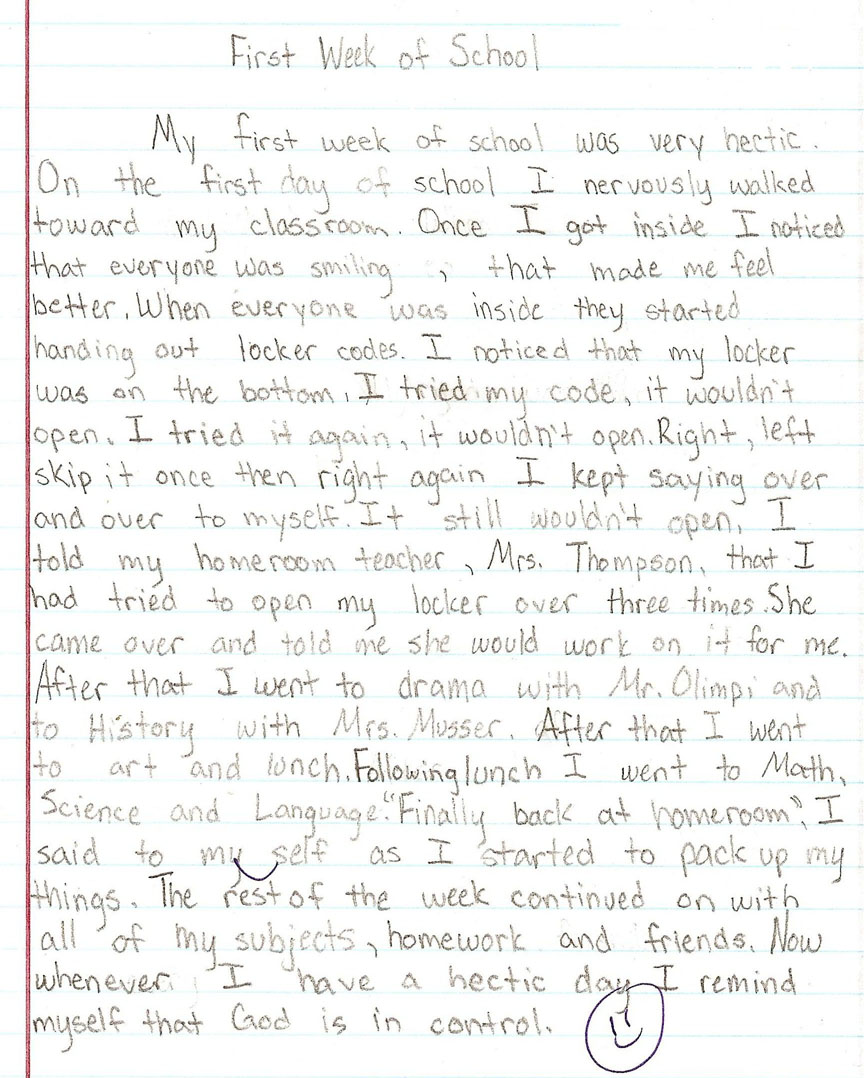 First Week of School
My first week of school was very hectic.
On the first day of school I nervously walked
toward my classroom. Once I got inside I noticed
that everyone was smiling , that made me feel
better. When everyone was inside they started
handing out locker codes. I noticed that my locker
was on the bottom. I tried my code, it wouldn't
open. I tried it again, it wouldn't open. Right, left
skip it once then right again I kept saying over
and over to myself. It still wouldn't open. I
told my homeroom teacher, Mrs. Thompson, that I
had tried to open my locker over three times. She
came over and told me she would work on it for me.
After that I went to drama with Mr. Olimpi and
to History with Mrs. Musser. After that I went
to art and lunch. Following lunch I went to Math,
Science and Language. "Finally back at homeroom", I
said to my self as I started to pack up my
things. The rest of the week continued on with
all of my subjects, homework and friends. Now
whenever I have a hectic day I remind
myself that God is in control.